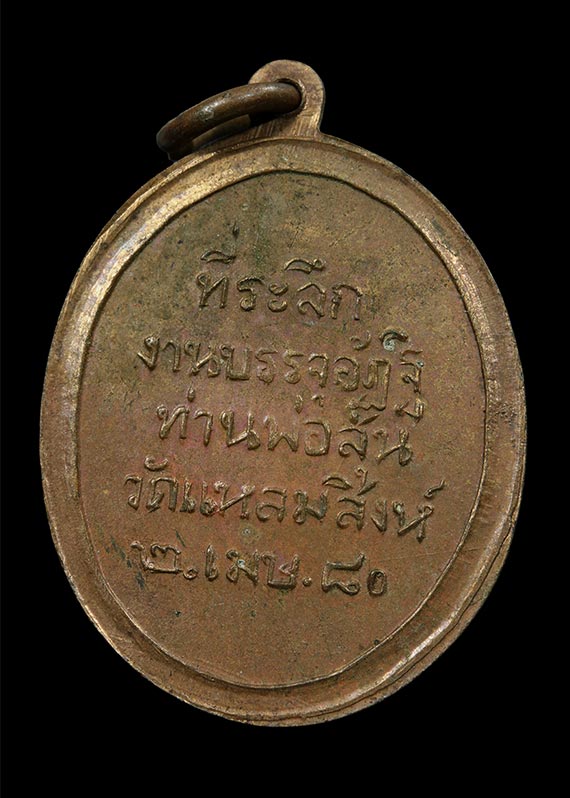 ที่ระลึก
งานบรรจุอัฏฐิ
ท่านพ่อลั้น
วัดแหลมสิงห์
๒.เมษ.๘๐